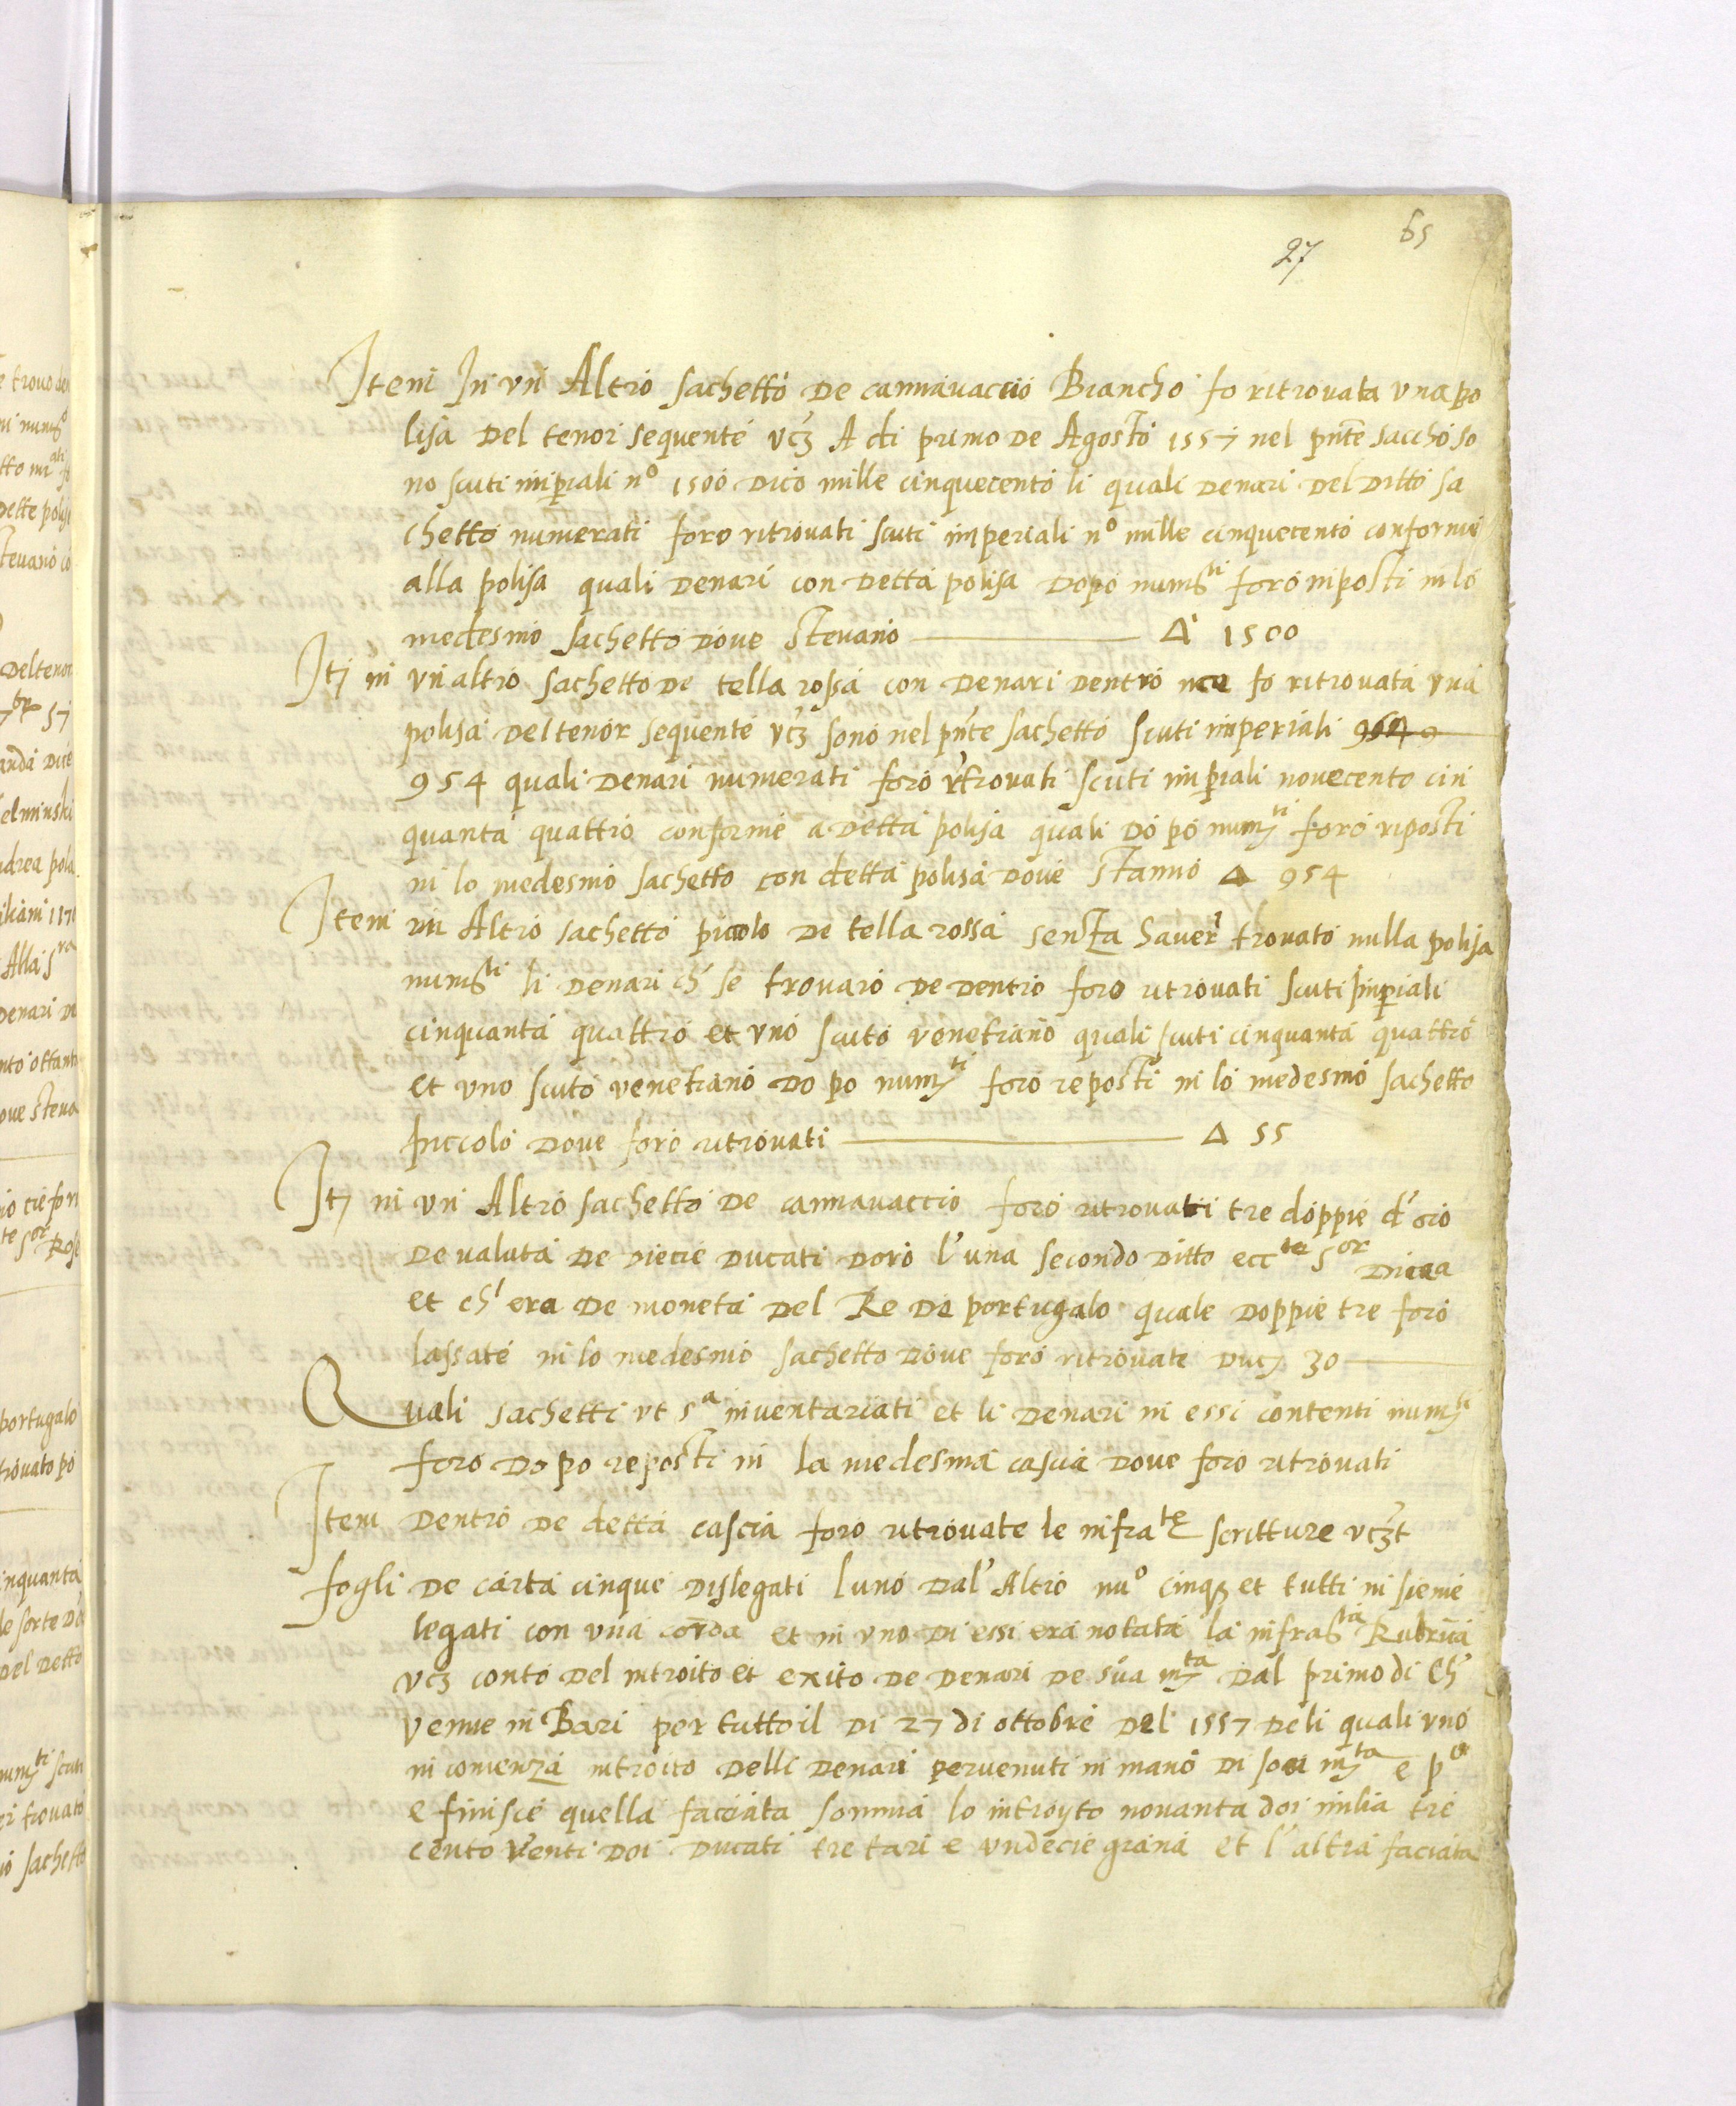 65
27
Item In un Altro sachetto de cannavaccio Biancho fo ritrovata una po
lisa del tenor sequente vcz A di primo de Agosto 1557 nel pnte saccho so
no scuti imperiali n° 1500 dico mille cinquecento li quali denari del ditto sa
chetto numerati foro ritrovati scuti imperiali n° mille cinquecento conforme
alla polisa quali denari con detta polisa dopo numti foro riposti in lo
medesmo sachetto dove stevano — Δ 1500
Itj in un altro sachetto de tella rossa con denari dentro nce fo ritrovata una
polisa del tenor sequente vcz sono nel pnte sachetto scuti imperiali
954 quali denari numerati foro ritrovati scuti imperiali novecento cin
quanta quattro conforme a detta polisa quali dopo numti foro riposti
in lo medesmo sachetto con detta polisa dove stanno Δ 954
Item un Altro sachetto picolo de tella rossa senza haver trovato nulla polisa
numti li denari ch' se trovaro de dentro foro ritrovati scuti imperiali
cinquanta quattro et uno scuto venetiano quali scuti cinquanta quattro
et uno scuto venetiano dopo numti foro reposti in lo medesmo sachetto
piccolo dove foro ritrovati — Δ 55
Itj in un Altro sachetto de cannavaccio foro ritrovati tre doppie d'oro
de valuta de diecie ducati doro l'una secondo ditto eccte Sor
et ch' era de moneta del Re de portugalo quale doppie tre foro
lassate in lo medesmo sachetto dove foro ritrovate ducj 30 —
Quali sachetti ut sa inventariati et li denari in essi contenti numti
foro dopo reposti in la medesma cascia dove foro ritrovati
Item dentro de detta cascia foro ritrovate le infrate scritture vczt
fogli de carta cinque dislegati luno dal' Altro nu° cinq; et tutti insieme
legati con una corda et in uno di essi era notata la infrasta Rubrica
vcz conto del introito et exito de denari de sua mta dal primo di ch'
venne in Bari per tutto il di 27 di ottobre del 1557 deli quali uno
in comenza introito delli denari pervenuti in mano di soa mta e po
e finisce quella facciata somma lo introyto novanta doi milia tre
cento venti doi ducati tre tari e undecie grana et l'altra faciata